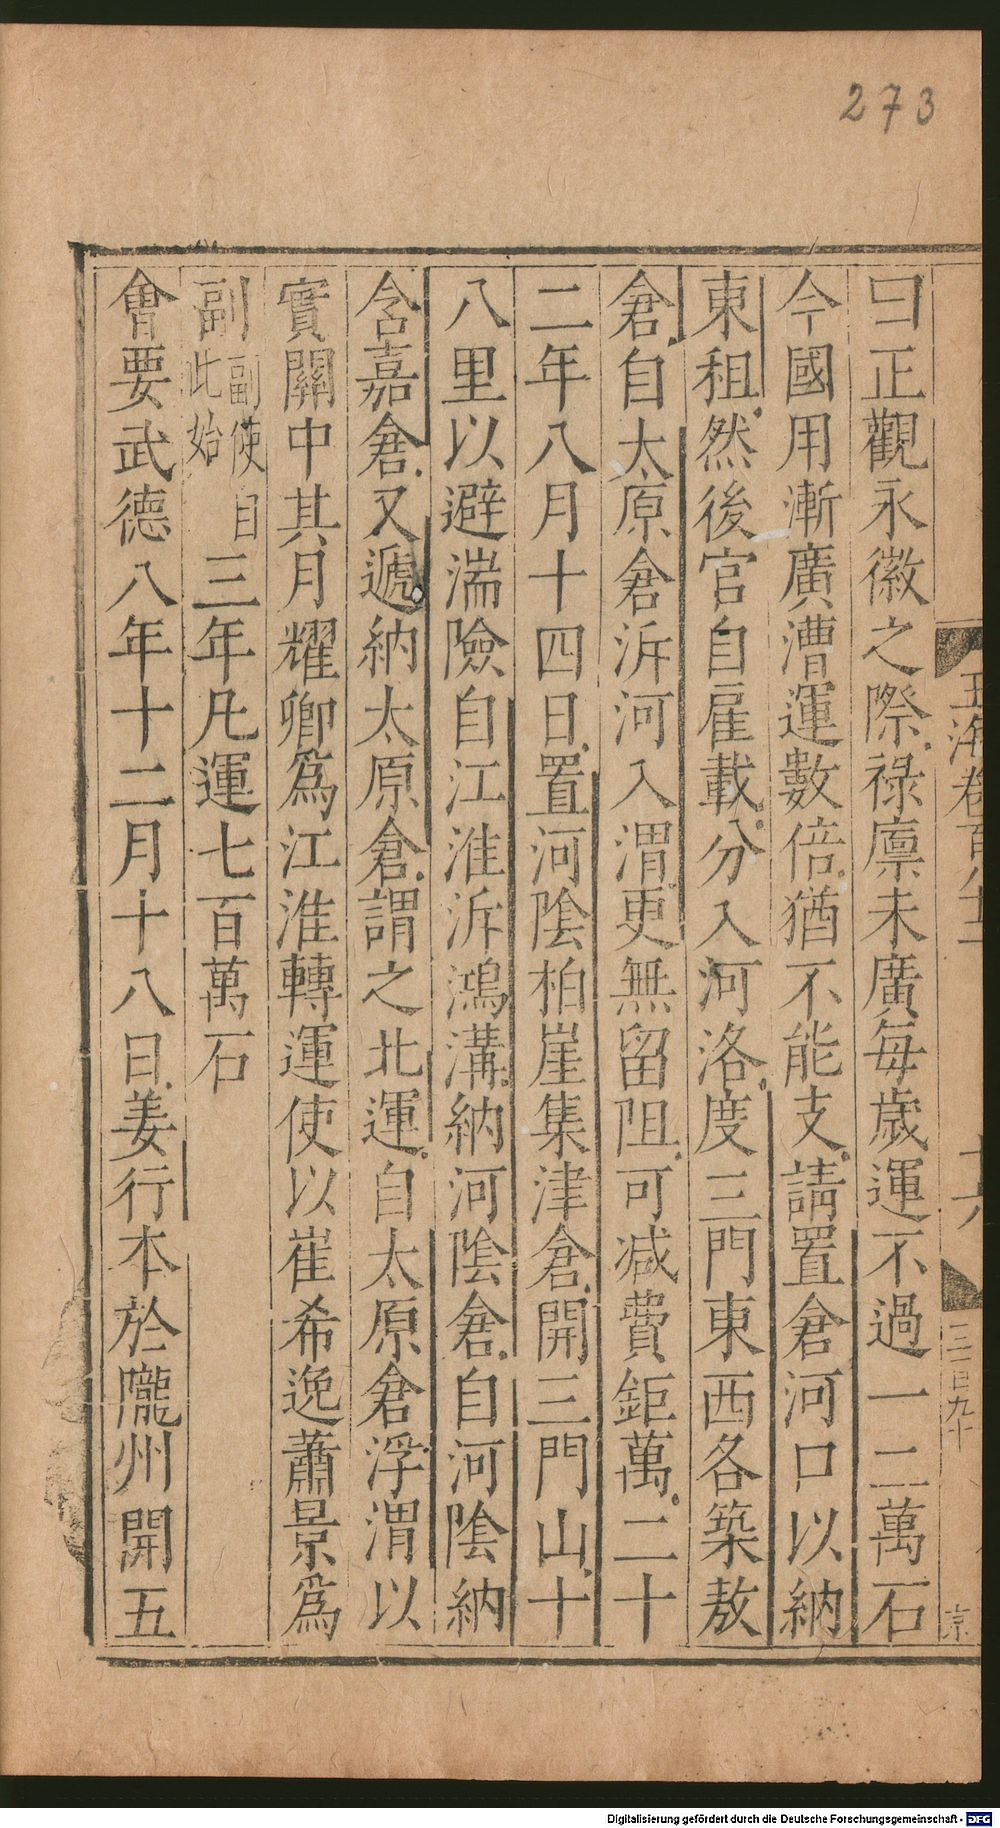 273
曰正觀永徽之際祿廪未廣每歲運不過一二萬石
今國用漸廣漕運數倍猶不能支請置倉河口以納
東租然後官自雇載分入河洛度三門東西各築敖
倉自太原倉泝河入渭更無留阻可减費鉅萬二十
二年八月十四日置河陰柏崖集津倉開三門山十
八里以避湍險自江淮泝鴻溝納河陰倉自河陰納
含嘉倉又遞納太原倉謂之北運自太原倉浮渭以
實關中其月耀卿爲江淮轉運使以崔希逸蕭景爲
副副使自此始三年凡運七百萬石
會要武德八年十二月十八日姜行本於隴州開五
玉海卷百八十
三百九十
京
Digitalisierung gefördert durch die Deutsche Forschungsgemeinschaft - DFG